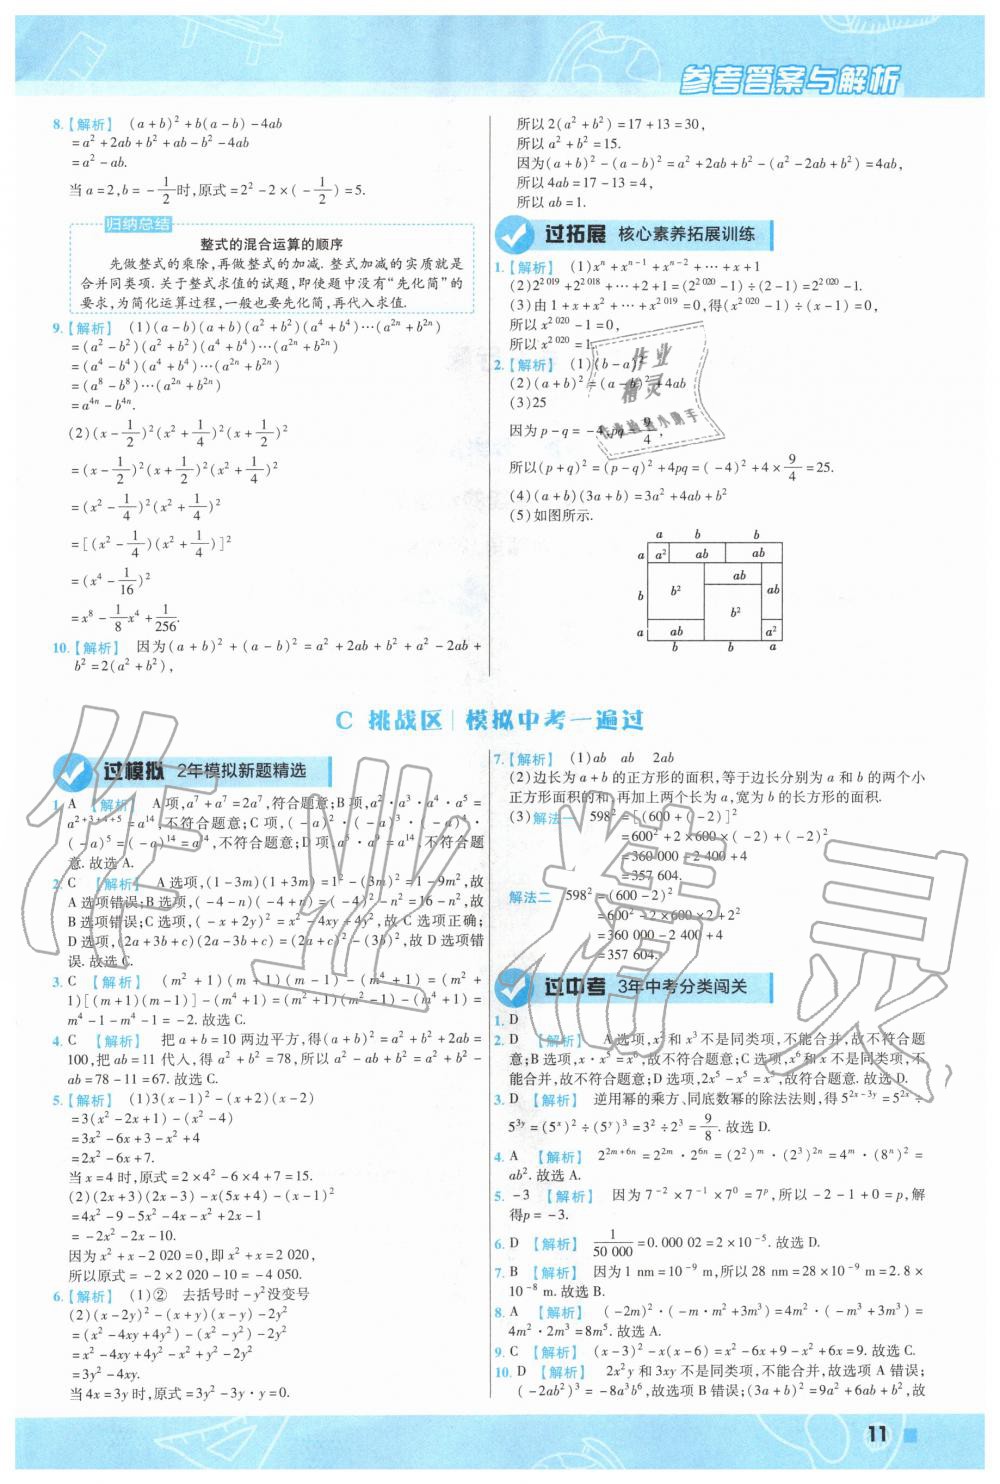 参考答案与解析
8.【解析】 (a+b)²+b(a-b)-4ab
=a²+2ab+b²+ab-b²-4ab
=a²-ab.
当a=2,b=-1/2时,原式=2²-2×(-1/2)=5.
归纳总结
整式的混合运算的顺序
先做整式的乘除,再做整式的加减.整式加减的实质就是
合并同类项.关于整式求值的试题,即使题中没有“先化简”的
要求,为简化运算过程,一般也要先化简,再代入求值.
9.【解析】 (1)(a-b)(a+b)(a²+b²)(a⁴+b⁴)…(a²ⁿ+b²ⁿ)
=(a²-b²)(a²+b²)(a⁴+b⁴)…(a²ⁿ+b²ⁿ)
=(a⁴-b⁴)(a⁴+b⁴)…(a²ⁿ+b²ⁿ)
=(a⁸-b⁸)…(a²ⁿ+b²ⁿ)
=a⁴ⁿ-b⁴ⁿ.
(2)(x-1/2)²(x²+1/4)²(x+1/2)²
=(x-1/2)²(x+1/2)²(x²+1/4)²
=(x²-1/4)²(x²+1/4)²
=[(x²-1/4)(x²+1/4)]²
=(x⁴-1/16)²
=x⁸-1/8x⁴+1/256.
10.【解析】 因为(a+b)²+(a-b)²=a²+2ab+b²+a²-2ab+
b²=2(a²+b²),
所以2(a²+b²)=17+13=30,
所以a²+b²=15.
因为(a+b)²-(a-b)²=a²+2ab+b²-(a²-2ab+b²)=4ab,
所以4ab=17-13=4,
所以ab=1.
过拓展 核心素养拓展训练
1.【解析】 (1)xⁿ+xⁿ⁻¹+xⁿ⁻²+…+x+1
(2)2²⁰¹⁹+2²⁰¹⁸+…+2+1=(2²⁰²⁰-1)÷(2-1)=2²⁰²⁰-1.
(3)由1+x+x²+…+x²⁰¹⁹=0,得(x²⁰²⁰-1)÷(x-1)=0,
所以x²⁰²⁰-1=0,
所以x²⁰²⁰=1.
2.【解析】 (1)(b-a)²
(2)(a+b)²=(a-b)²+4ab
(3)25
因为p-q=-4,pq=9/4,
所以(p+q)²=(p-q)²+4pq=(-4)²+4×9/4=25.
(4)(a+b)(3a+b)=3a²+4ab+b²
(5)如图所示.
a b b
a a² ab ab
ab
b b² ab
b²
a ab a²
b b a
C 挑战区 模拟中考一遍过
过模拟 2年模拟新题精选
1. A 【解析】 A项,a⁷+a⁷=2a⁷,符合题意;B项,a²·a³·a⁴·a⁵=
a²⁺³⁺⁴⁺⁵=a¹⁴,不符合题意;C项,(-a)²·(-a)³·(-a)⁴·
(-a)⁵=(-a)¹⁴=a¹⁴,不符合题意;D项,a⁵·a⁹=a¹⁴,不符合题
意.故选A.
2. C 【解析】 A选项,(1-3m)(1+3m)=1²-(3m)²=1-9m²,故
A选项错误;B选项,(-4-n)(-4+n)=(-4)²-n²=16-n²,故
B选项错误;C选项,(-x+2y)²=x²-4xy+4y²,故C选项正确;
D选项,(2a+3b+c)(2a-3b+c)=(2a+c)²-(3b)²,故D选项错
误.故选C.
3. C 【解析】 (m²+1)(m+1)(m-1)-(m⁴+1)=(m²+
1)[(m+1)(m-1)]-(m⁴+1)=(m²+1)(m²-1)-(m⁴+1)=
m⁴-1-m⁴-1=-2.故选C.
4. C 【解析】 把a+b=10两边平方,得(a+b)²=a²+b²+2ab=
100,把ab=11代入,得a²+b²=78,所以a²-ab+b²=a²+b²-
ab=78-11=67.故选C.
5.【解析】 (1)3(x-1)²-(x+2)(x-2)
=3(x²-2x+1)-(x²-4)
=3x²-6x+3-x²+4
=2x²-6x+7.
当x=4时,原式=2×4²-6×4+7=15.
(2)(2x+3)(2x-3)-x(5x+4)-(x-1)²
=4x²-9-5x²-4x-x²+2x-1
=-2x²-2x-10.
因为x²+x-2 020=0,即x²+x=2 020,
所以原式=-2×2 020-10=-4 050.
6.【解析】 (1)② 去括号时-y²没变号
(2)(x-2y)²-(x+y)(x-y)-2y²
=(x²-4xy+4y²)-(x²-y²)-2y²
=x²-4xy+4y²-x²+y²-2y²
=3y²-4xy.
当4x=3y时,原式=3y²-3y·y=0.
7.【解析】 (1)ab ab 2ab
(2)边长为a+b的正方形的面积,等于边长分别为a和b的两个小
正方形面积的和,再加上两个长为a,宽为b的长方形的面积.
(3)解法一 598²=[600+(-2)]²
=600²+2×600×(-2)+(-2)²
=360 000-2 400+4
=357 604.
解法二 598²=(600-2)²
=600²-2×600×2+2²
=360 000-2 400+4
=357 604.
过中考 3年中考分类闯关
1. D
2. D 【解析】 A选项,x²和x³不是同类项,不能合并,故不符合题
意;B选项,x·x⁵=x⁶,故不符合题意;C选项,x⁶和x不是同类项,不
能合并,故不符合题意;D选项,2x⁵-x⁵=x⁵,故符合题意.故选D.
3. D 【解析】 逆用幂的乘方、同底数幂的除法法则,得5²ˣ⁻³ʸ=5²ˣ÷
5³ʸ=(5ˣ)²÷(5ʸ)³=3²÷2³=9/8.故选D.
4. A 【解析】 2²ᵐ⁺⁶ⁿ=2²ᵐ·2⁶ⁿ=(2²)ᵐ·(2³)²ⁿ=4ᵐ·(8ⁿ)²=
ab².故选A.
5. -3 【解析】 因为7⁻²×7⁻¹×7⁰=7ᵖ,所以-2-1+0=p,解
得p=-3.
6. D 【解析】 1/50 000=0.000 02=2×10⁻⁵.故选D.
7. B 【解析】 因为1 nm=10⁻⁹ m,所以28 nm=28×10⁻⁹ m=2.8×
10⁻⁸ m.故选B.
8. A 【解析】 (-2m)²·(-m·m²+3m³)=4m²·(-m³+3m³)=
4m²·2m³=8m⁵.故选A.
9. C 【解析】 (x-3)²-x(x-6)=x²-6x+9-x²+6x=9.故选C.
10. D 【解析】 2x²y和3xy不是同类项,不能合并,故选项A错误;
(-2ab²)³=-8a³b⁶,故选项B错误;(3a+b)²=9a²+6ab+b²,故
11
作业精灵
作业
精灵
作业检查小助手